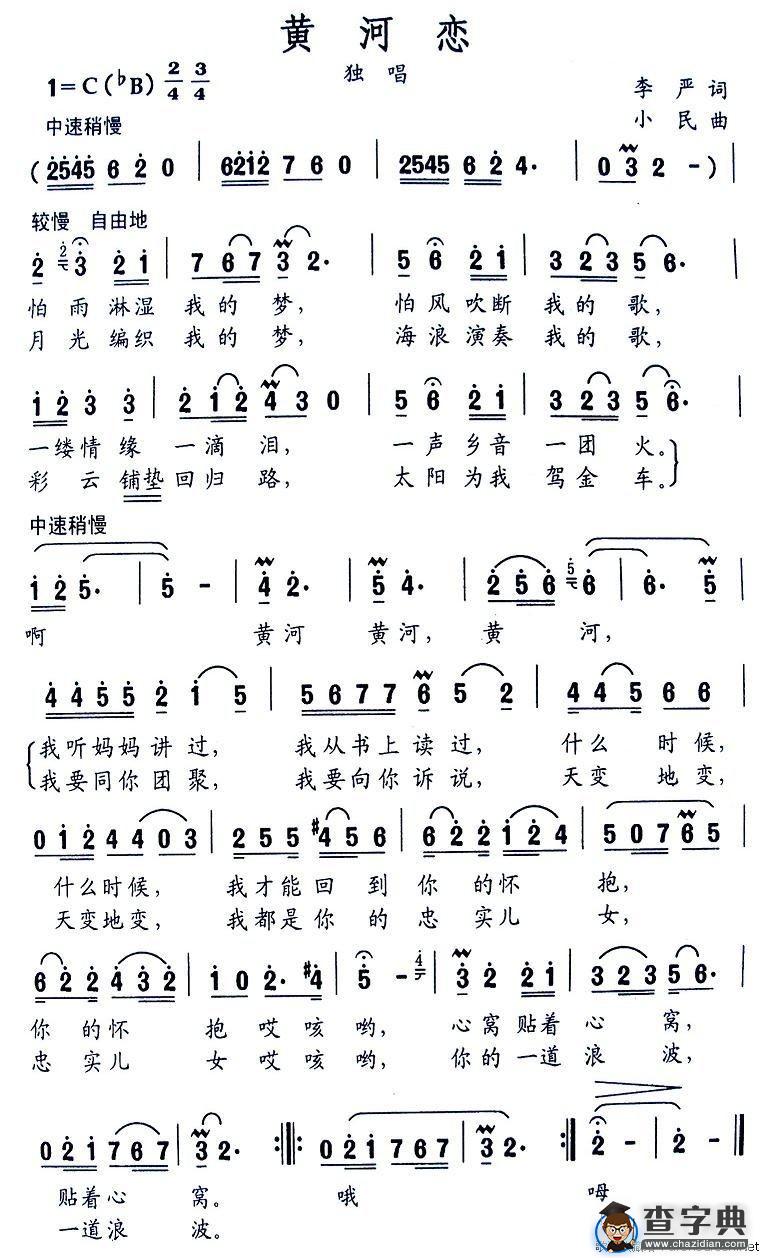 黄 河 恋
独 唱
1=C(♭B) 2/4 3/4
李 严 词
小 民 曲
中速稍慢
(2545 6 2 0 | 6212 7 6 0 | 2545 6 2 4· | 0 3 2 -) |
较慢 自由地
2 3 2 1 | 7 6 7 3 2· | 5 6 2 1 | 3 2 3 5 6· |
怕 雨 淋湿 我 的 梦, 怕 风 吹 断 我 的 歌,
月 光 编织 我 的 梦, 海 浪 演 奏 我 的 歌,
1 2 3 3 | 2 1 2 4 3 0 | 5 6 2 1 | 3 2 3 5 6· |
一 缕 情 缘 一 滴 泪, 一 声 乡 音 一 团 火。
彩 云 铺垫 回 归 路, 太 阳 为 我 驾 金 车。
中速稍慢
1 2 5· | 5 - | 4 2· | 5 4· | 2 5 6 5 6 | 6· 5 |
啊 黄 河 黄 河, 黄 河,
4 4 5 5 2 1 5 | 5 6 7 7 6 5 2 | 4 4 5 6 6 |
我 听 妈 妈 讲 过, 我 从 书 上 读 过, 什 么 时 候,
我 要 同 你 团 聚, 我 要 向 你 诉 说, 天 变 地 变,
0 1 2 4 4 0 3 | 2 5 5 #4 5 6 | 6 2 2 1 2 4 | 5 0 7 6 5 |
什 么 时 候, 我 才 能 回 到 你 的 怀 抱,
天 变 地 变, 我 都 是 你 的 忠 实 儿 女,
6 2 2 4 3 2 | 1 0 2· #4 | 5 - 4 | 3 2 2 1 | 3 2 3 5 6· |
你 的 怀 抱 哎 咳 哟, 心 窝 贴 着 心 窝,
忠 实 儿 女 哎 咳 哟, 你 的 一 道 浪 波,
0 2 1 7 6 7 | 3 2· :‖: 0 2 1 7 6 7 | 3 2· :‖ 2 - | 2 - ‖
贴 着 心 窝。 哦 呣
一 道 浪 波。
查字典
www.chazidian.com